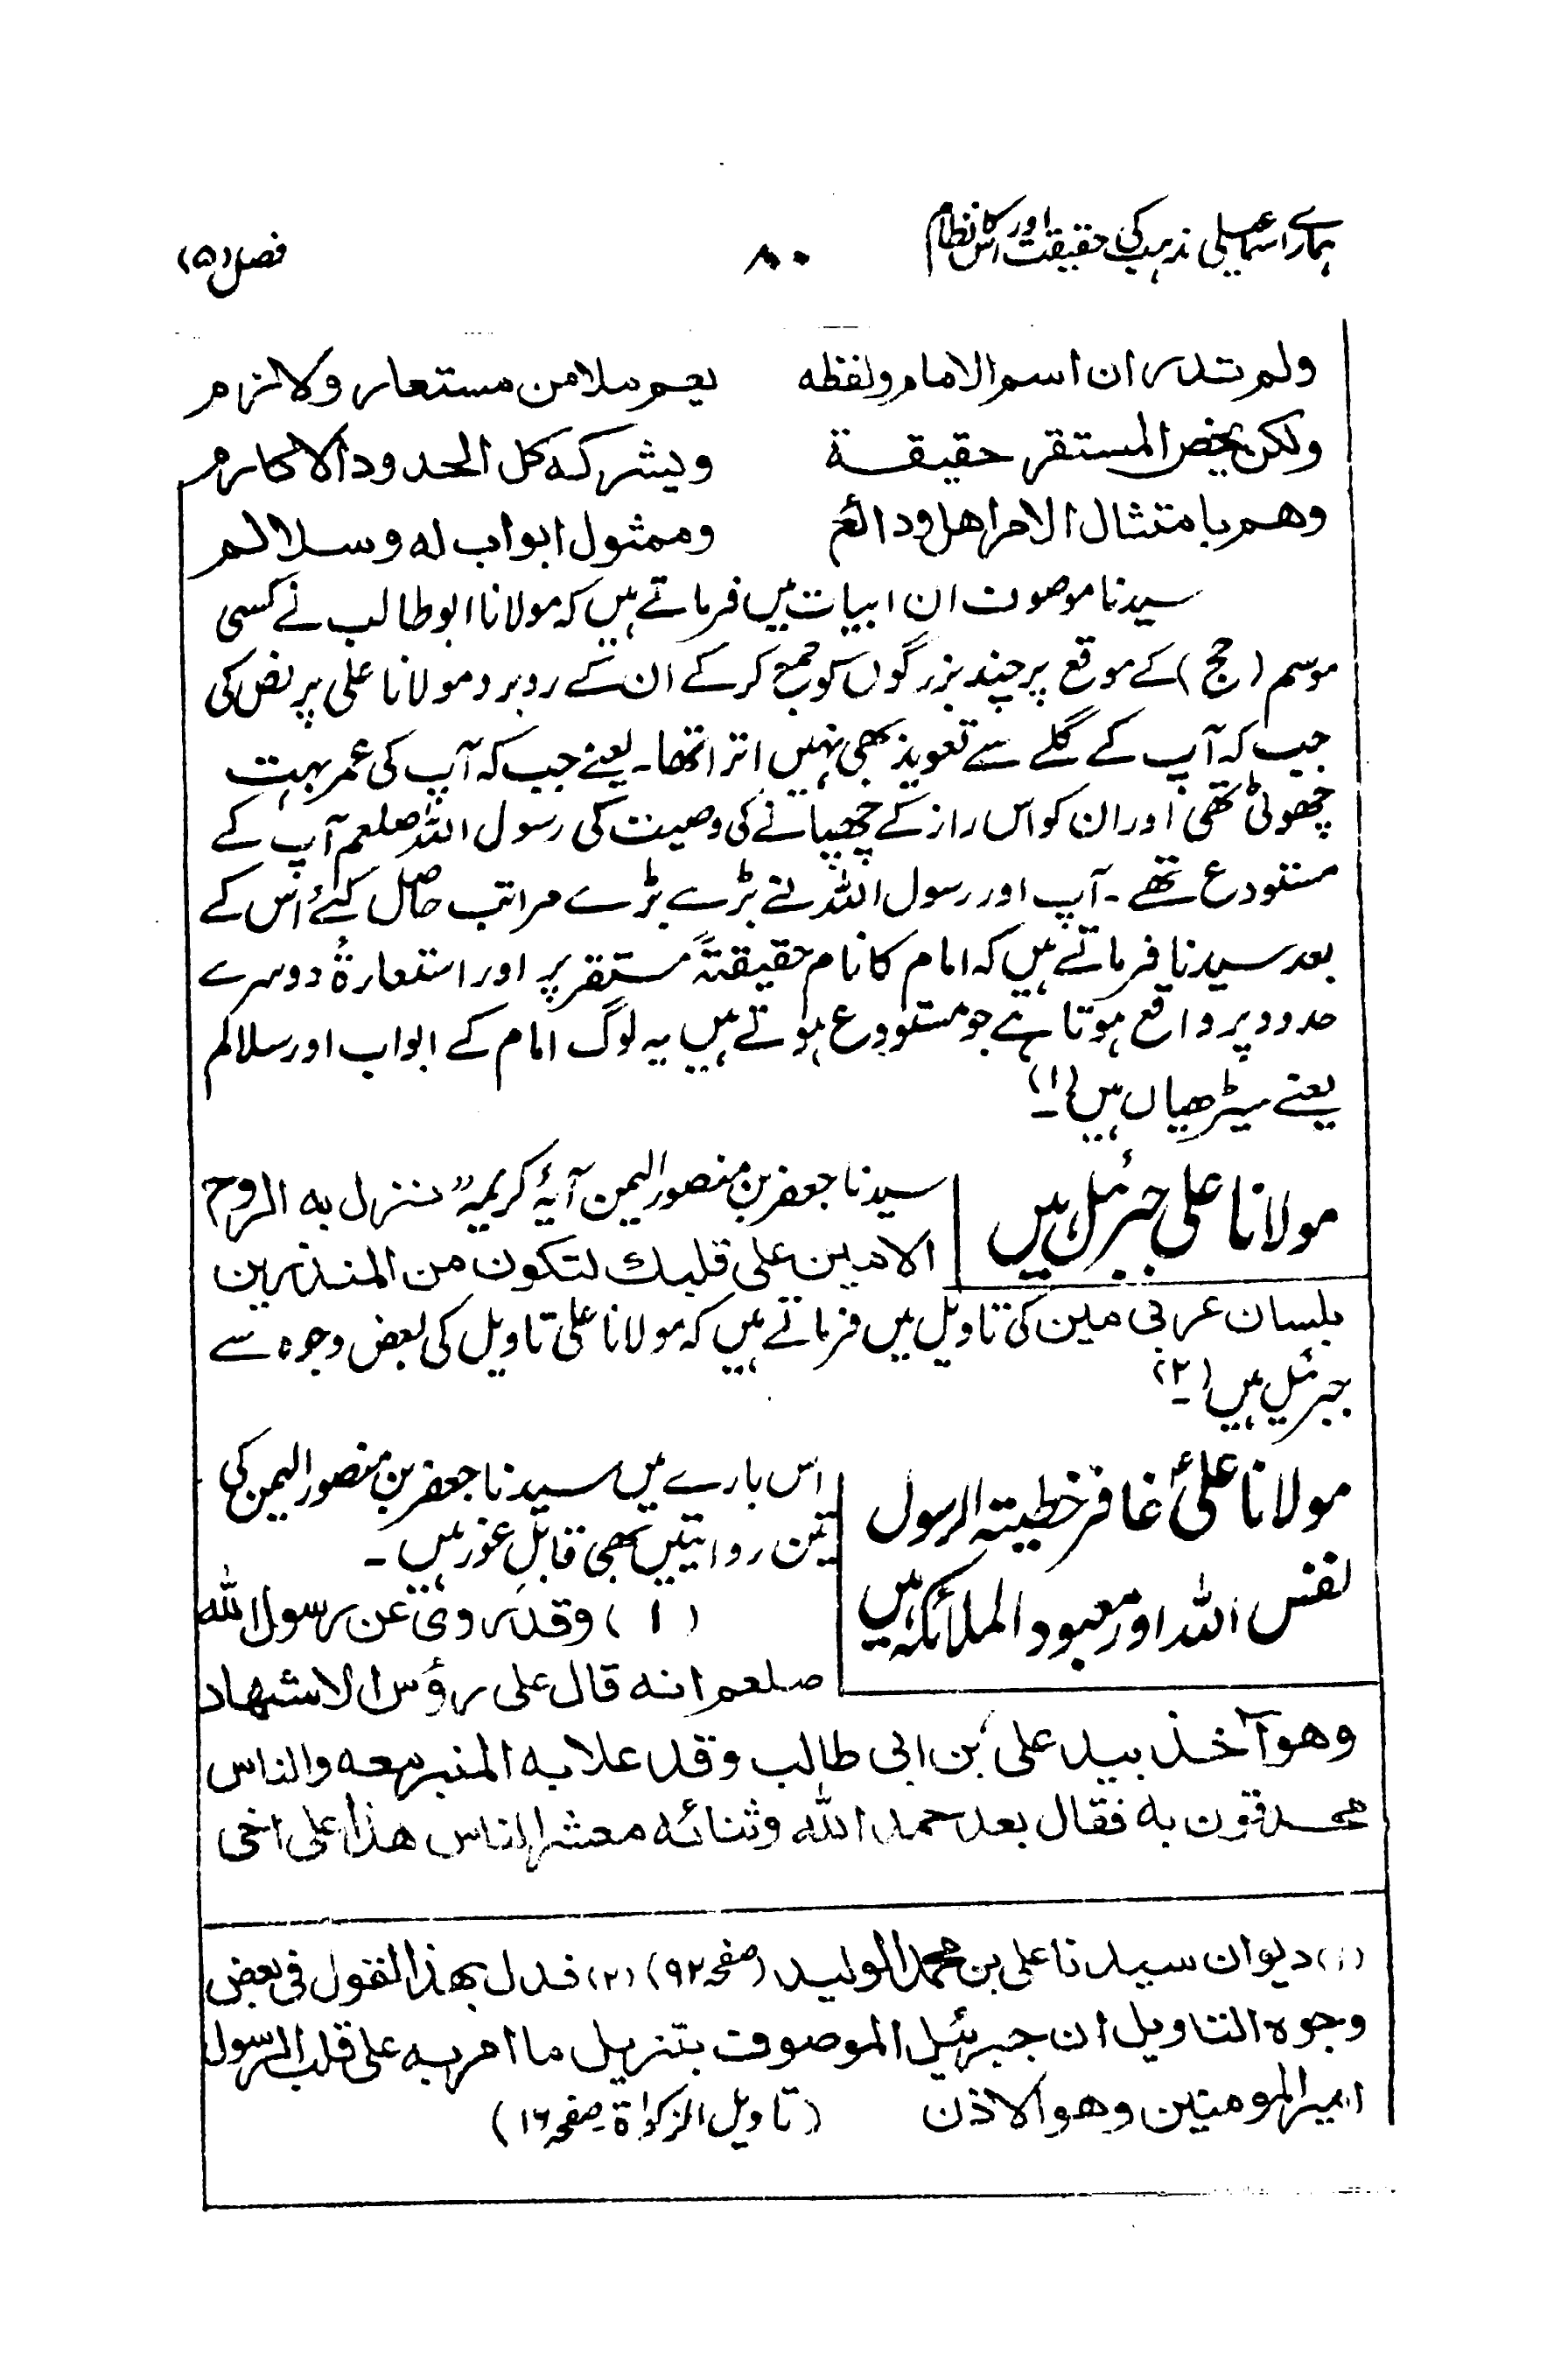 ہمارے اسماعیلی مذہب کی حقیقت اور اس کا نظام ۸۰ فصل (۵)
ولم تدر ان اسم الامام ولفظه يعم بلا من مستعار ولا لزم
ولكن يخص المستقر حقيقة ويشركه كل الحدود الاكارم
وهم بامتثال الامر اهل ودائع وممثول ابواب له وسلالم
سیدنا موصوف ان ابیات میں فرماتے ہیں کہ مولانا ابوطالب نے کسی
موسم (حج) کے موقع پر چند بزرگوں کو جمع کرکے ان کے روبرو مولانا علی پر نص کی
جب کہ آپ کے گلے سے تعویذ بھی نہیں اترا تھا۔ یعنے جب کہ آپ کی عمر بہت
چھوٹی تھی اور ان کو اس راز کے چھپانے کی وصیت کی رسول اللہ صلعم آپ کے
مستودع تھے۔ آپ اور رسول اللہ نے بڑے بڑے مراتب حاصل کئے اس کے
بعد سیدنا فرماتے ہیں کہ امام کا نام حقیقتہً مستقر پر اور استعارۃً دوسرے
حدود پر واقع ہوتا ہے جو مستودع ہوتے ہیں یہ لوگ امام کے ابواب اور سلالم
یعنے سیڑھیاں ہیں (۱)۔
مولانا علی جبرئیل ہیں
سیدنا جعفر بن منصور الیمن آیۂ کریمہ "نزل به الروح
الامين على قلبك لتكون من المنذرين
بلسان عربی مبین کی تاویل میں فرماتے ہیں کہ مولانا علی تاویل کی بعض وجوہ سے
جبرئیل ہیں (۲)۔
مولانا علیؑ غافر خطیئتہ الرسول
نفس اللہ اور معبود الملائکہ ہیں
اس بارے میں سیدنا جعفر بن منصور الیمن کی
تین روایتیں بھی قابلِ غور ہیں۔
(۱) وقد روى عن رسول الله
صلعم انه قال على رؤس الاشهاد
وهو آخذ بيد على بن ابى طالب وقد علا به المنبر معه والناس
محدقون به فقال بعد حمد الله وثنائه معشر الناس هذا على اخى
(۱) دیوان سیدنا علی بن محمد الولید (صفحہ ۹۲) (۲) فدل بهذا القول فى بعض
وجوه التاويل ان جبرئيل الموصوف بتنزيل ما امر به على قلب الرسول
امير المومنين وهو الاذن (تاویل الزکواۃ صفحہ ۱۶)